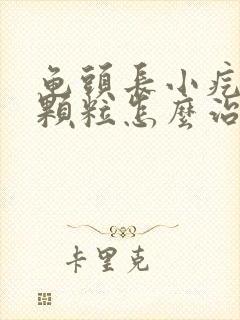 龟頭長小疙
顆粒怎麼治
卡里克